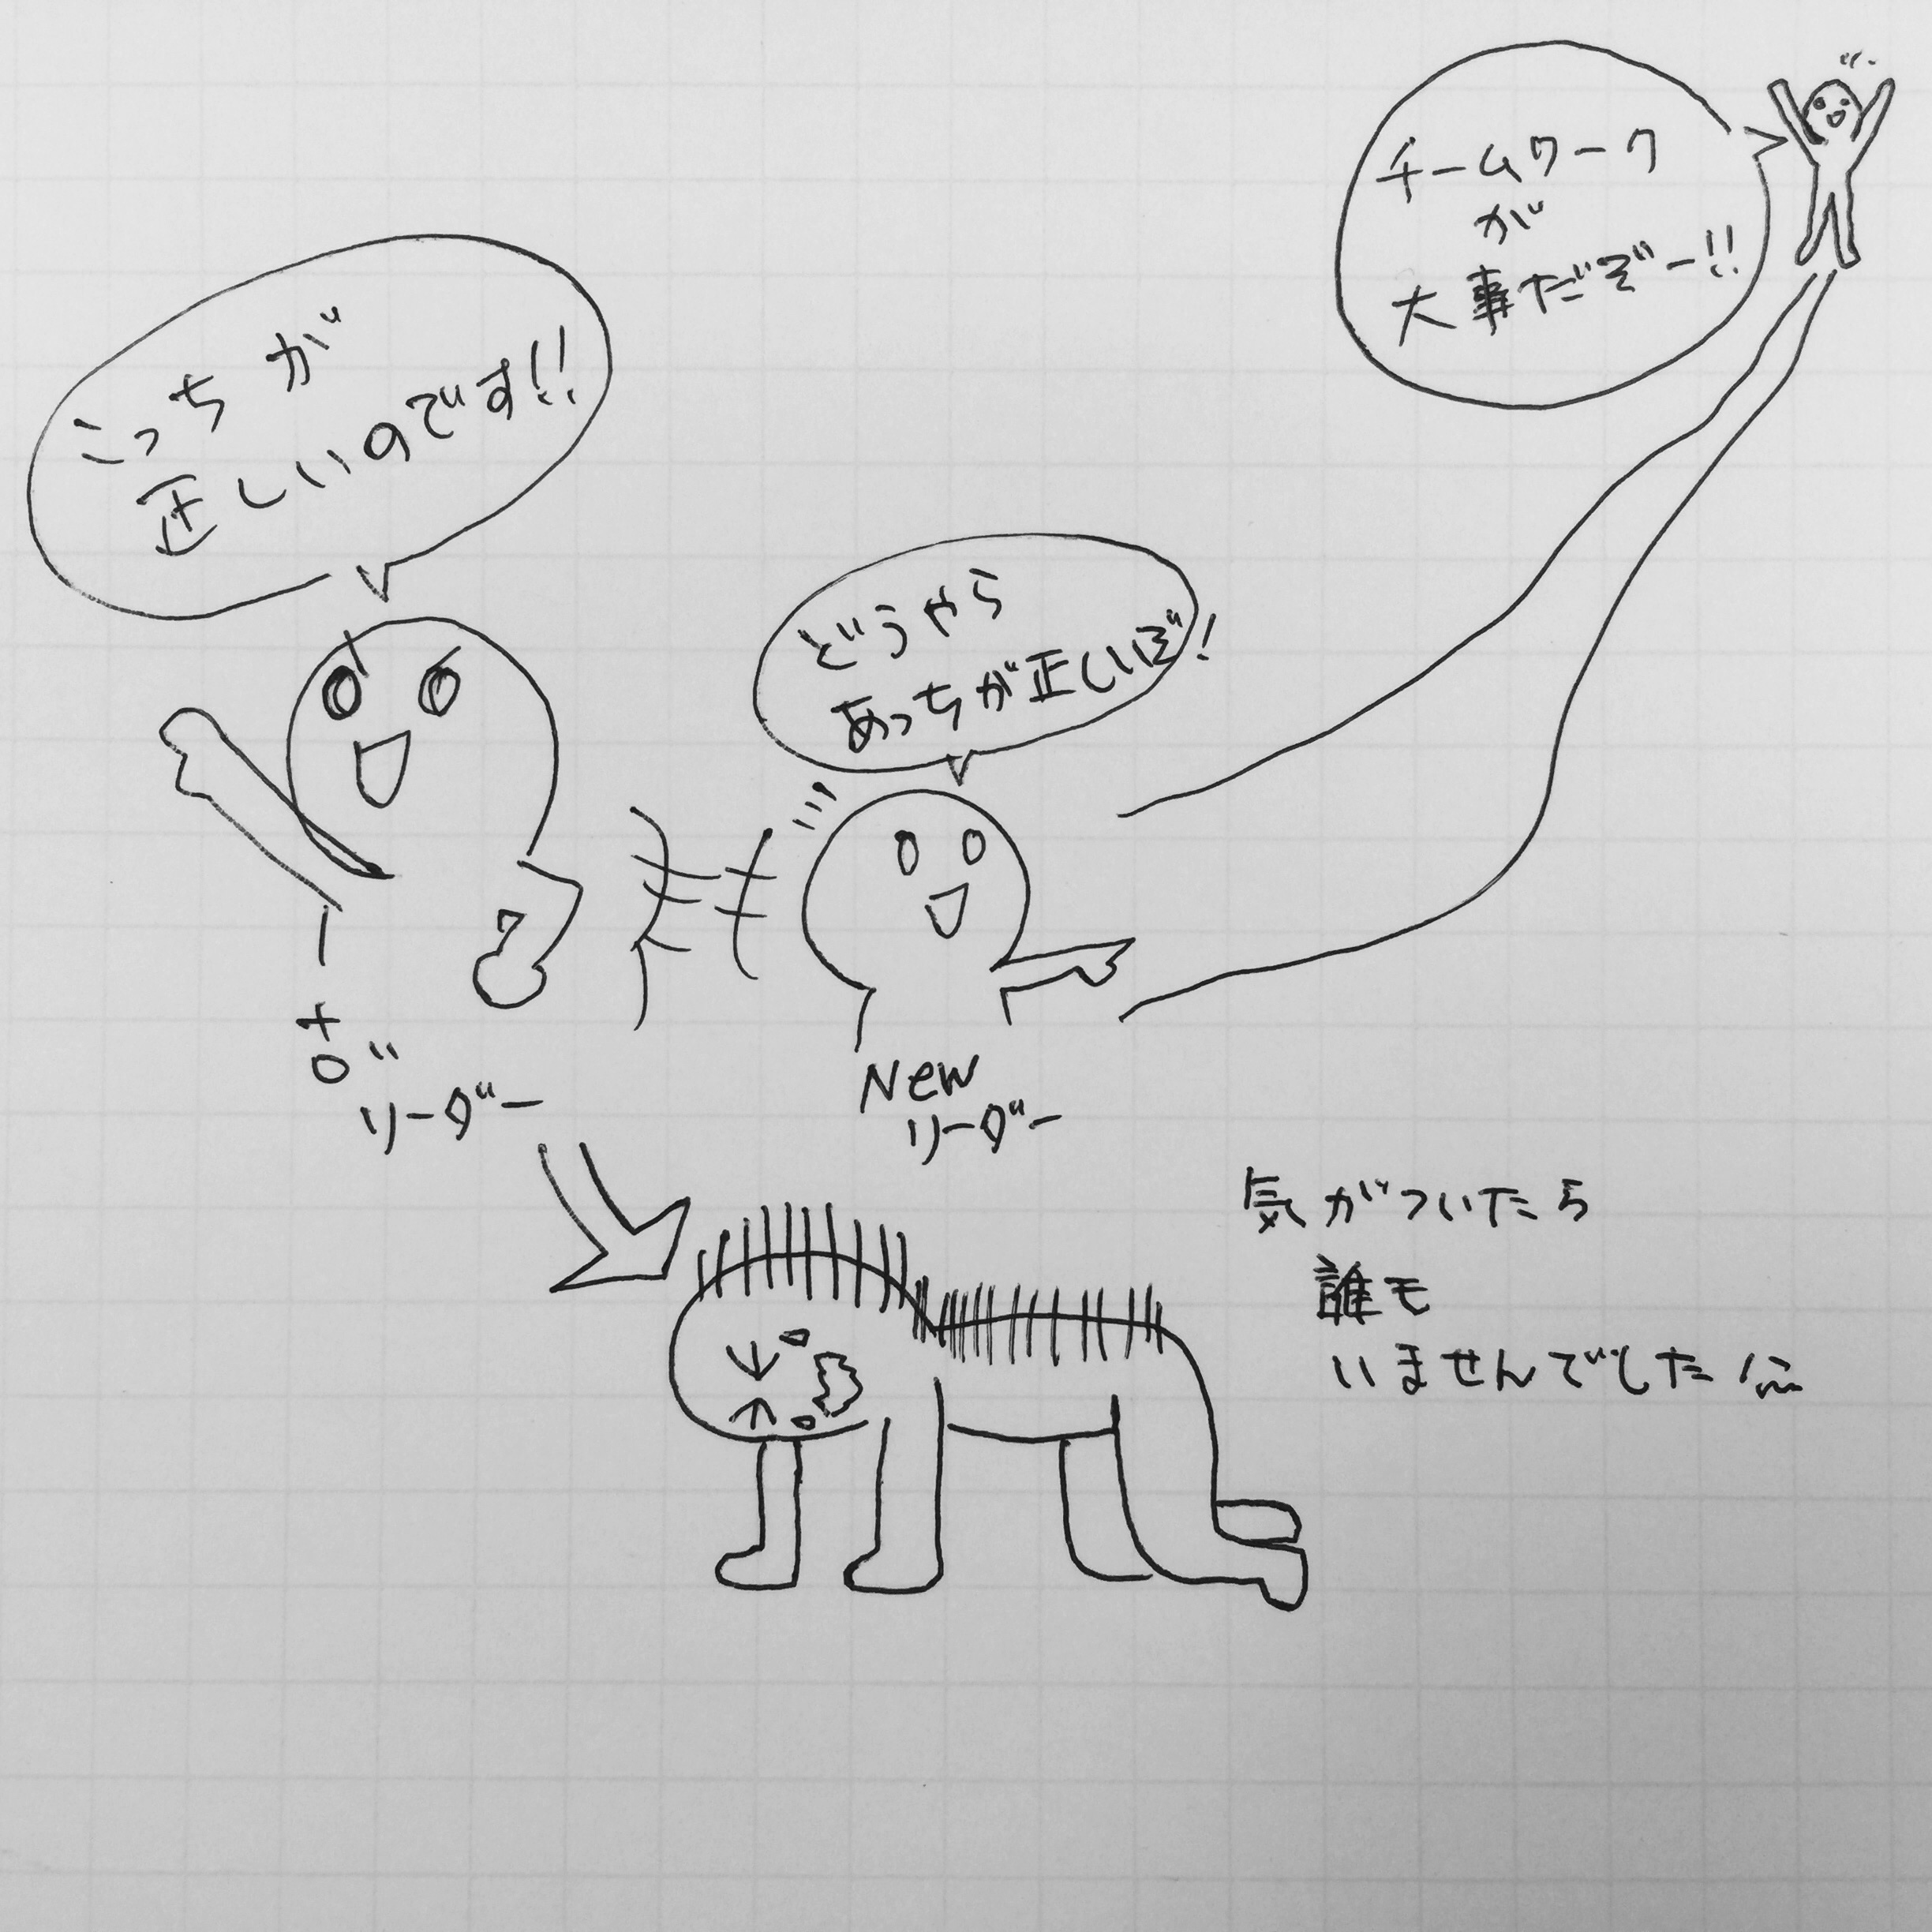 チームワーク
が
大事だぞー!!
こっちが
正しいのです!!
どうやら
あっちが正しいぞ!
リーダー
New
リーダー
気がついたら
誰も
いませんでした